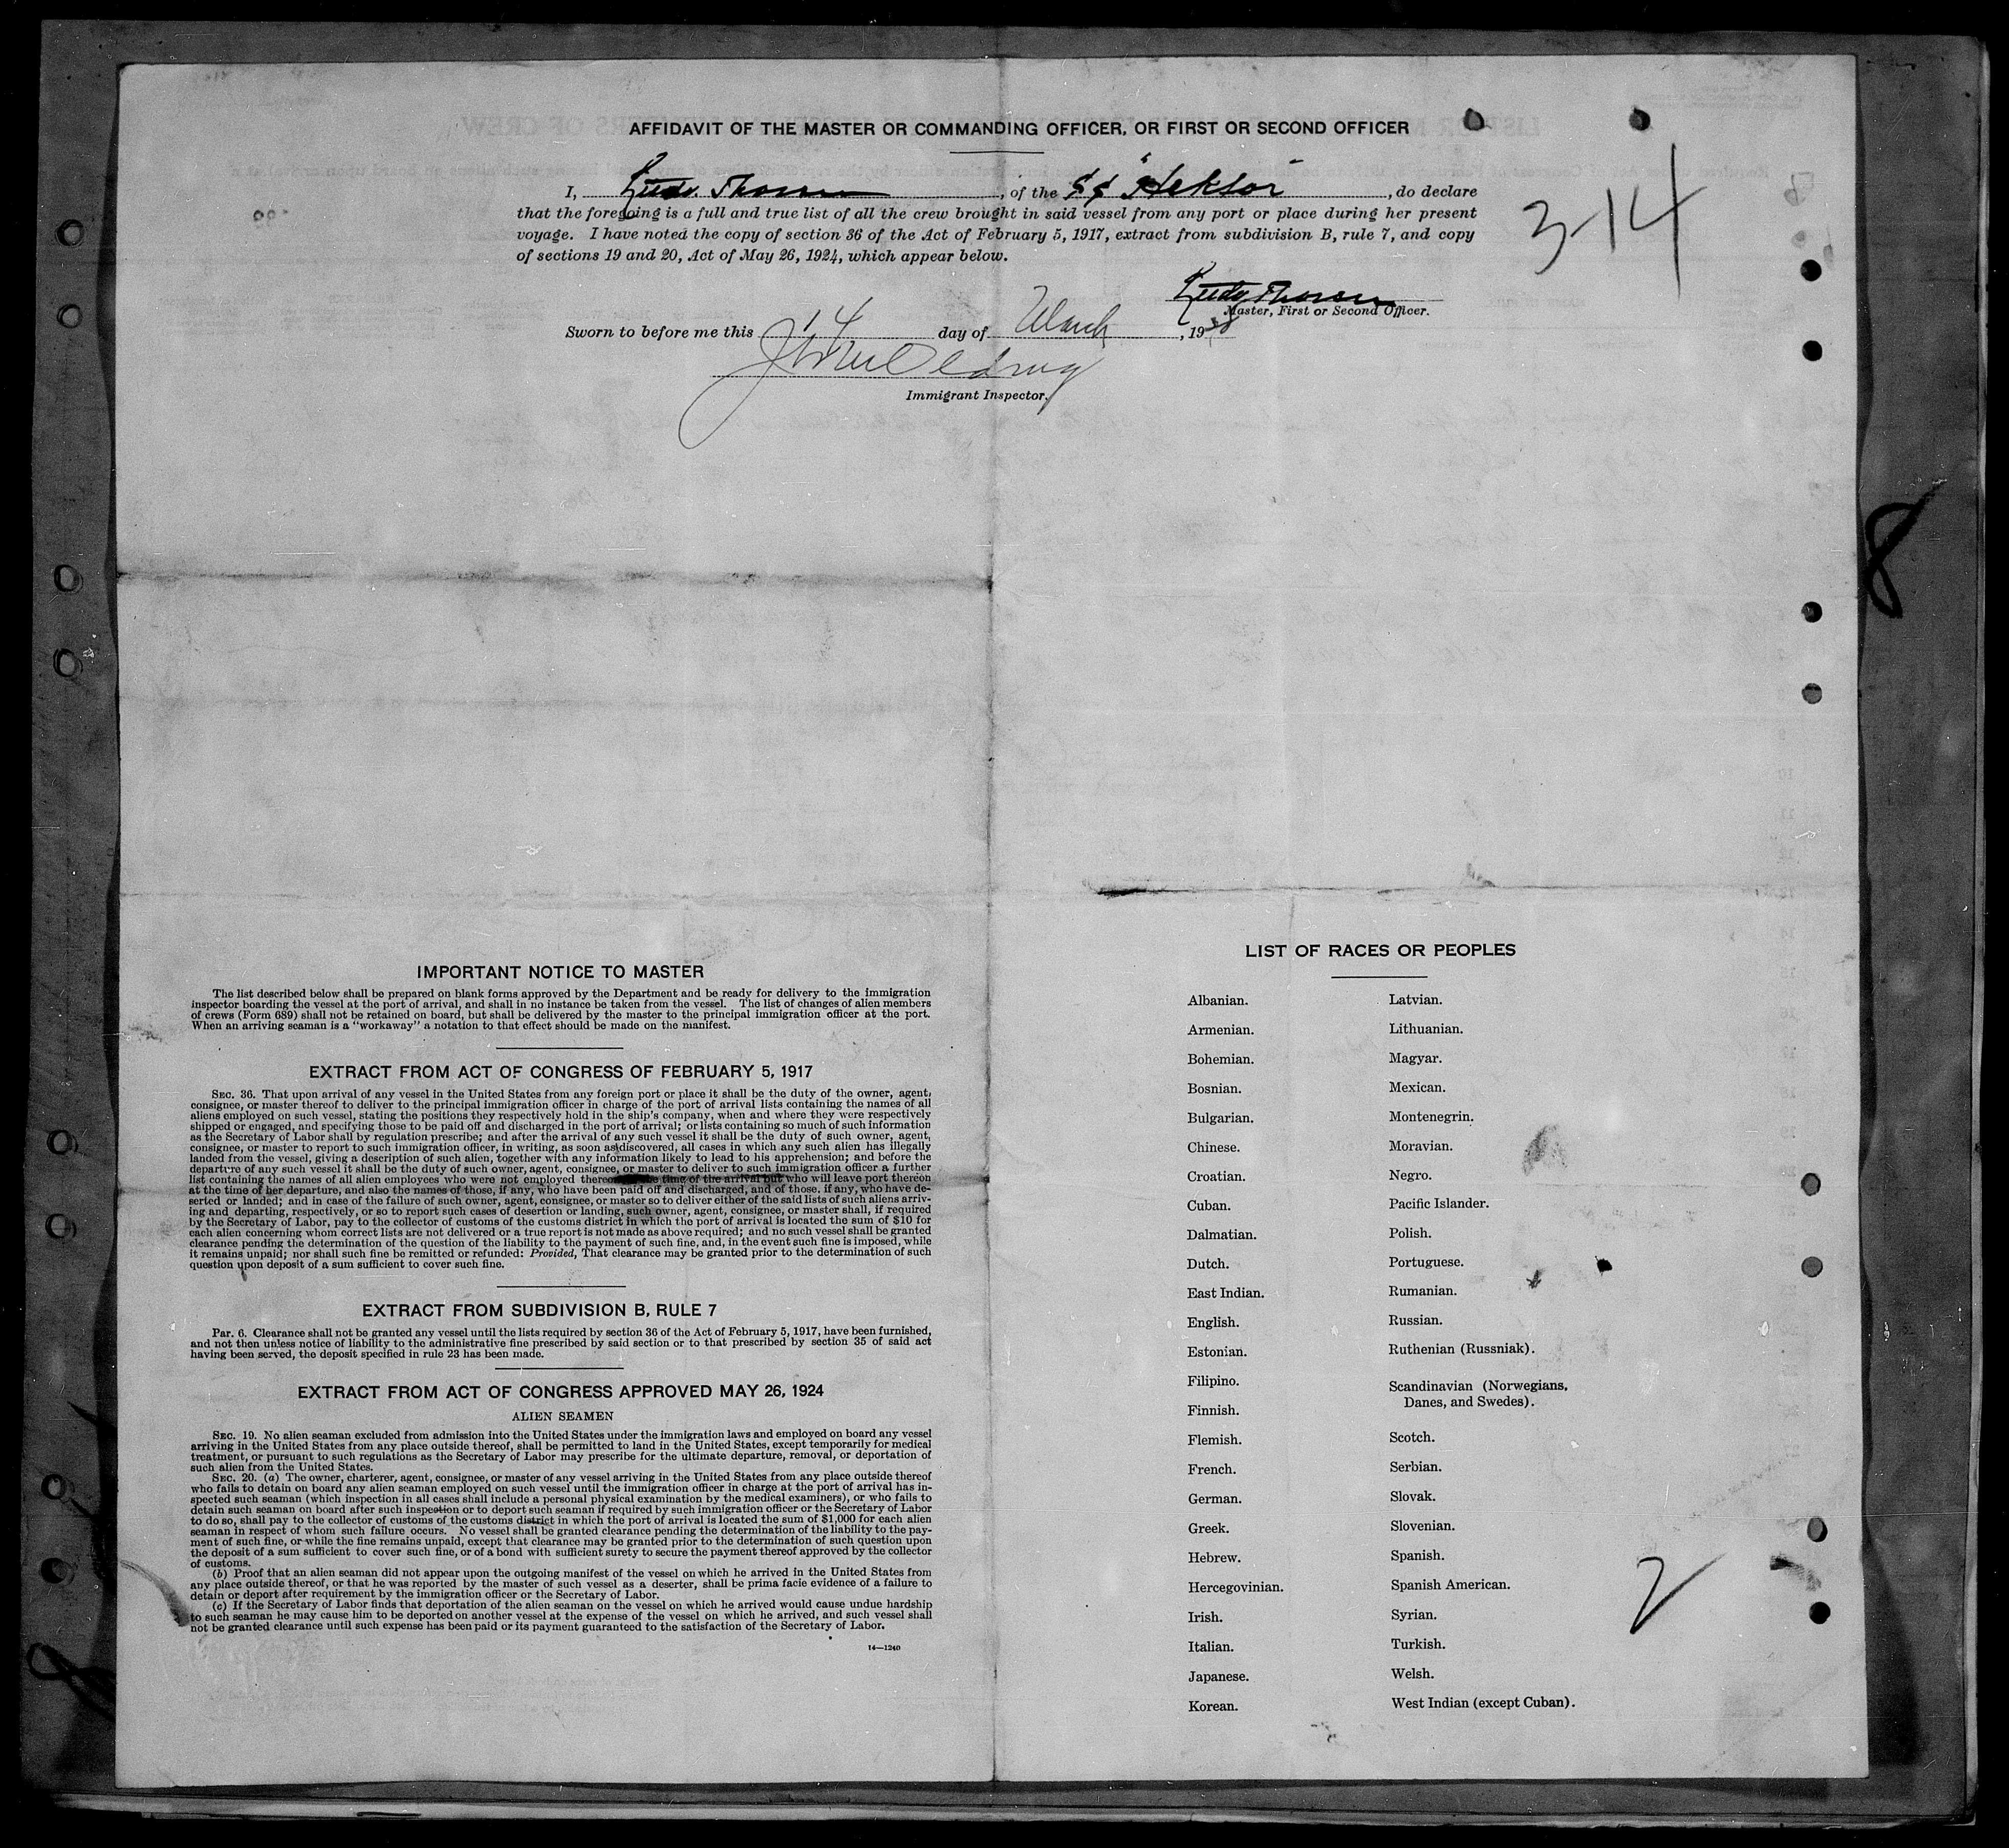 AFFIDAVIT OF THE MASTER OR COMMANDING OFFICER, OR FIRST OR SECOND OFFICER
I, Thorsen, of the SS "Hektor", do declare
that the foregoing is a full and true list of all the crew brought in said vessel from any port or place during her present
voyage. I have noted the copy of section 36 of the Act of February 5, 1917, extract from subdivision B, rule 7, and copy
of sections 19 and 20, Act of May 26, 1924, which appear below.
3-14
Thorsen
Master, First or Second Officer.
Sworn to before me this 14 day of March, 1938
Immigrant Inspector.
8
IMPORTANT NOTICE TO MASTER
The list described below shall be prepared on blank forms approved by the Department and be ready for delivery to the immigration
inspector boarding the vessel at the port of arrival, and shall in no instance be taken from the vessel. The list of changes of alien members
of crews (Form 689) shall not be retained on board, but shall be delivered by the master to the principal immigration officer at the port.
When an arriving seaman is a "workaway" a notation to that effect should be made on the manifest.
EXTRACT FROM ACT OF CONGRESS OF FEBRUARY 5, 1917
SEC. 36. That upon arrival of any vessel in the United States from any foreign port or place it shall be the duty of the owner, agent,
consignee, or master thereof to deliver to the principal immigration officer in charge of the port of arrival lists containing the names of all
aliens employed on such vessel, stating the positions they respectively hold in the ship's company, when and where they were respectively
shipped or engaged, and specifying those to be paid off and discharged in the port of arrival; or lists containing so much of such information
as the Secretary of Labor shall by regulation prescribe; and after the arrival of any such vessel it shall be the duty of such owner, agent,
consignee, or master to report to such immigration officer, in writing, as soon as discovered, all cases in which any such alien has illegally
landed from the vessel, giving a description of such alien, together with any information likely to lead to his apprehension; and before the
departure of any such vessel it shall be the duty of such owner, agent, consignee, or master to deliver to such immigration officer a further
list containing the names of all alien employees who were not employed thereon time of the arrival but who will leave port thereon
at the time of her departure, and also the names of those, if any, who have been paid off and discharged, and of those, if any, who have de-
serted or landed; and in case of the failure of such owner, agent, consignee, or master so to deliver either of the said lists of such aliens arriv-
ing and departing, respectively, or so to report such cases of desertion or landing, such owner, agent, consignee, or master shall, if required
by the Secretary of Labor, pay to the collector of customs of the customs district in which the port of arrival is located the sum of $10 for
each alien concerning whom correct lists are not delivered or a true report is not made as above required; and no such vessel shall be granted
clearance pending the determination of the question of the liability to the payment of such fine, and, in the event such fine is imposed, while
it remains unpaid; nor shall such fine be remitted or refunded: Provided, That clearance may be granted prior to the determination of such
question upon deposit of a sum sufficient to cover such fine.
EXTRACT FROM SUBDIVISION B, RULE 7
Par. 6. Clearance shall not be granted any vessel until the lists required by section 36 of the Act of February 5, 1917, have been furnished,
and not then unless notice of liability to the administrative fine prescribed by said section or to that prescribed by section 35 of said act
having been served, the deposit specified in rule 23 has been made.
EXTRACT FROM ACT OF CONGRESS APPROVED MAY 26, 1924
ALIEN SEAMEN
SEC. 19. No alien seaman excluded from admission into the United States under the immigration laws and employed on board any vessel
arriving in the United States from any place outside thereof, shall be permitted to land in the United States, except temporarily for medical
treatment, or pursuant to such regulations as the Secretary of Labor may prescribe for the ultimate departure, removal, or deportation of
such alien from the United States.
SEC. 20. (a) The owner, charterer, agent, consignee, or master of any vessel arriving in the United States from any place outside thereof
who fails to detain on board any alien seaman employed on such vessel until the immigration officer in charge at the port of arrival has in-
spected such seaman (which inspection in all cases shall include a personal physical examination by the medical examiners), or who fails to
detain such seaman on board after such inspection or to deport such seaman if required by such immigration officer or the Secretary of Labor
to do so, shall pay to the collector of customs of the customs district in which the port of arrival is located the sum of $1,000 for each alien
seaman in respect of whom such failure occurs. No vessel shall be granted clearance pending the determination of the liability to the pay-
ment of such fine, or while the fine remains unpaid, except that clearance may be granted prior to the determination of such question upon
the deposit of a sum sufficient to cover such fine, or of a bond with sufficient surety to secure the payment thereof approved by the collector
of customs.
(b) Proof that an alien seaman did not appear upon the outgoing manifest of the vessel on which he arrived in the United States from
any place outside thereof, or that he was reported by the master of such vessel as a deserter, shall be prima facie evidence of a failure to
detain or deport after requirement by the immigration officer or the Secretary of Labor.
(c) If the Secretary of Labor finds that deportation of the alien seaman on the vessel on which he arrived would cause undue hardship
to such seaman he may cause him to be deported on another vessel at the expense of the vessel on which he arrived, and such vessel shall
not be granted clearance until such expense has been paid or its payment guaranteed to the satisfaction of the Secretary of Labor.
14—1240
8
LIST OF RACES OR PEOPLES
Albanian.
Armenian.
Bohemian.
Bosnian.
Bulgarian.
Chinese.
Croatian.
Cuban.
Dalmatian.
Dutch.
East Indian.
English.
Estonian.
Filipino.
Finnish.
Flemish.
French.
German.
Greek.
Hebrew.
Hercegovinian.
Irish.
Italian.
Japanese.
Korean.
Latvian.
Lithuanian.
Magyar.
Mexican.
Montenegrin.
Moravian.
Negro.
Pacific Islander.
Polish.
Portuguese.
Rumanian.
Russian.
Ruthenian (Russniak).
Scandinavian (Norwegians,
Danes, and Swedes).
Scotch.
Serbian.
Slovak.
Slovenian.
Spanish.
Spanish American.
Syrian.
Turkish.
Welsh.
West Indian (except Cuban).
2